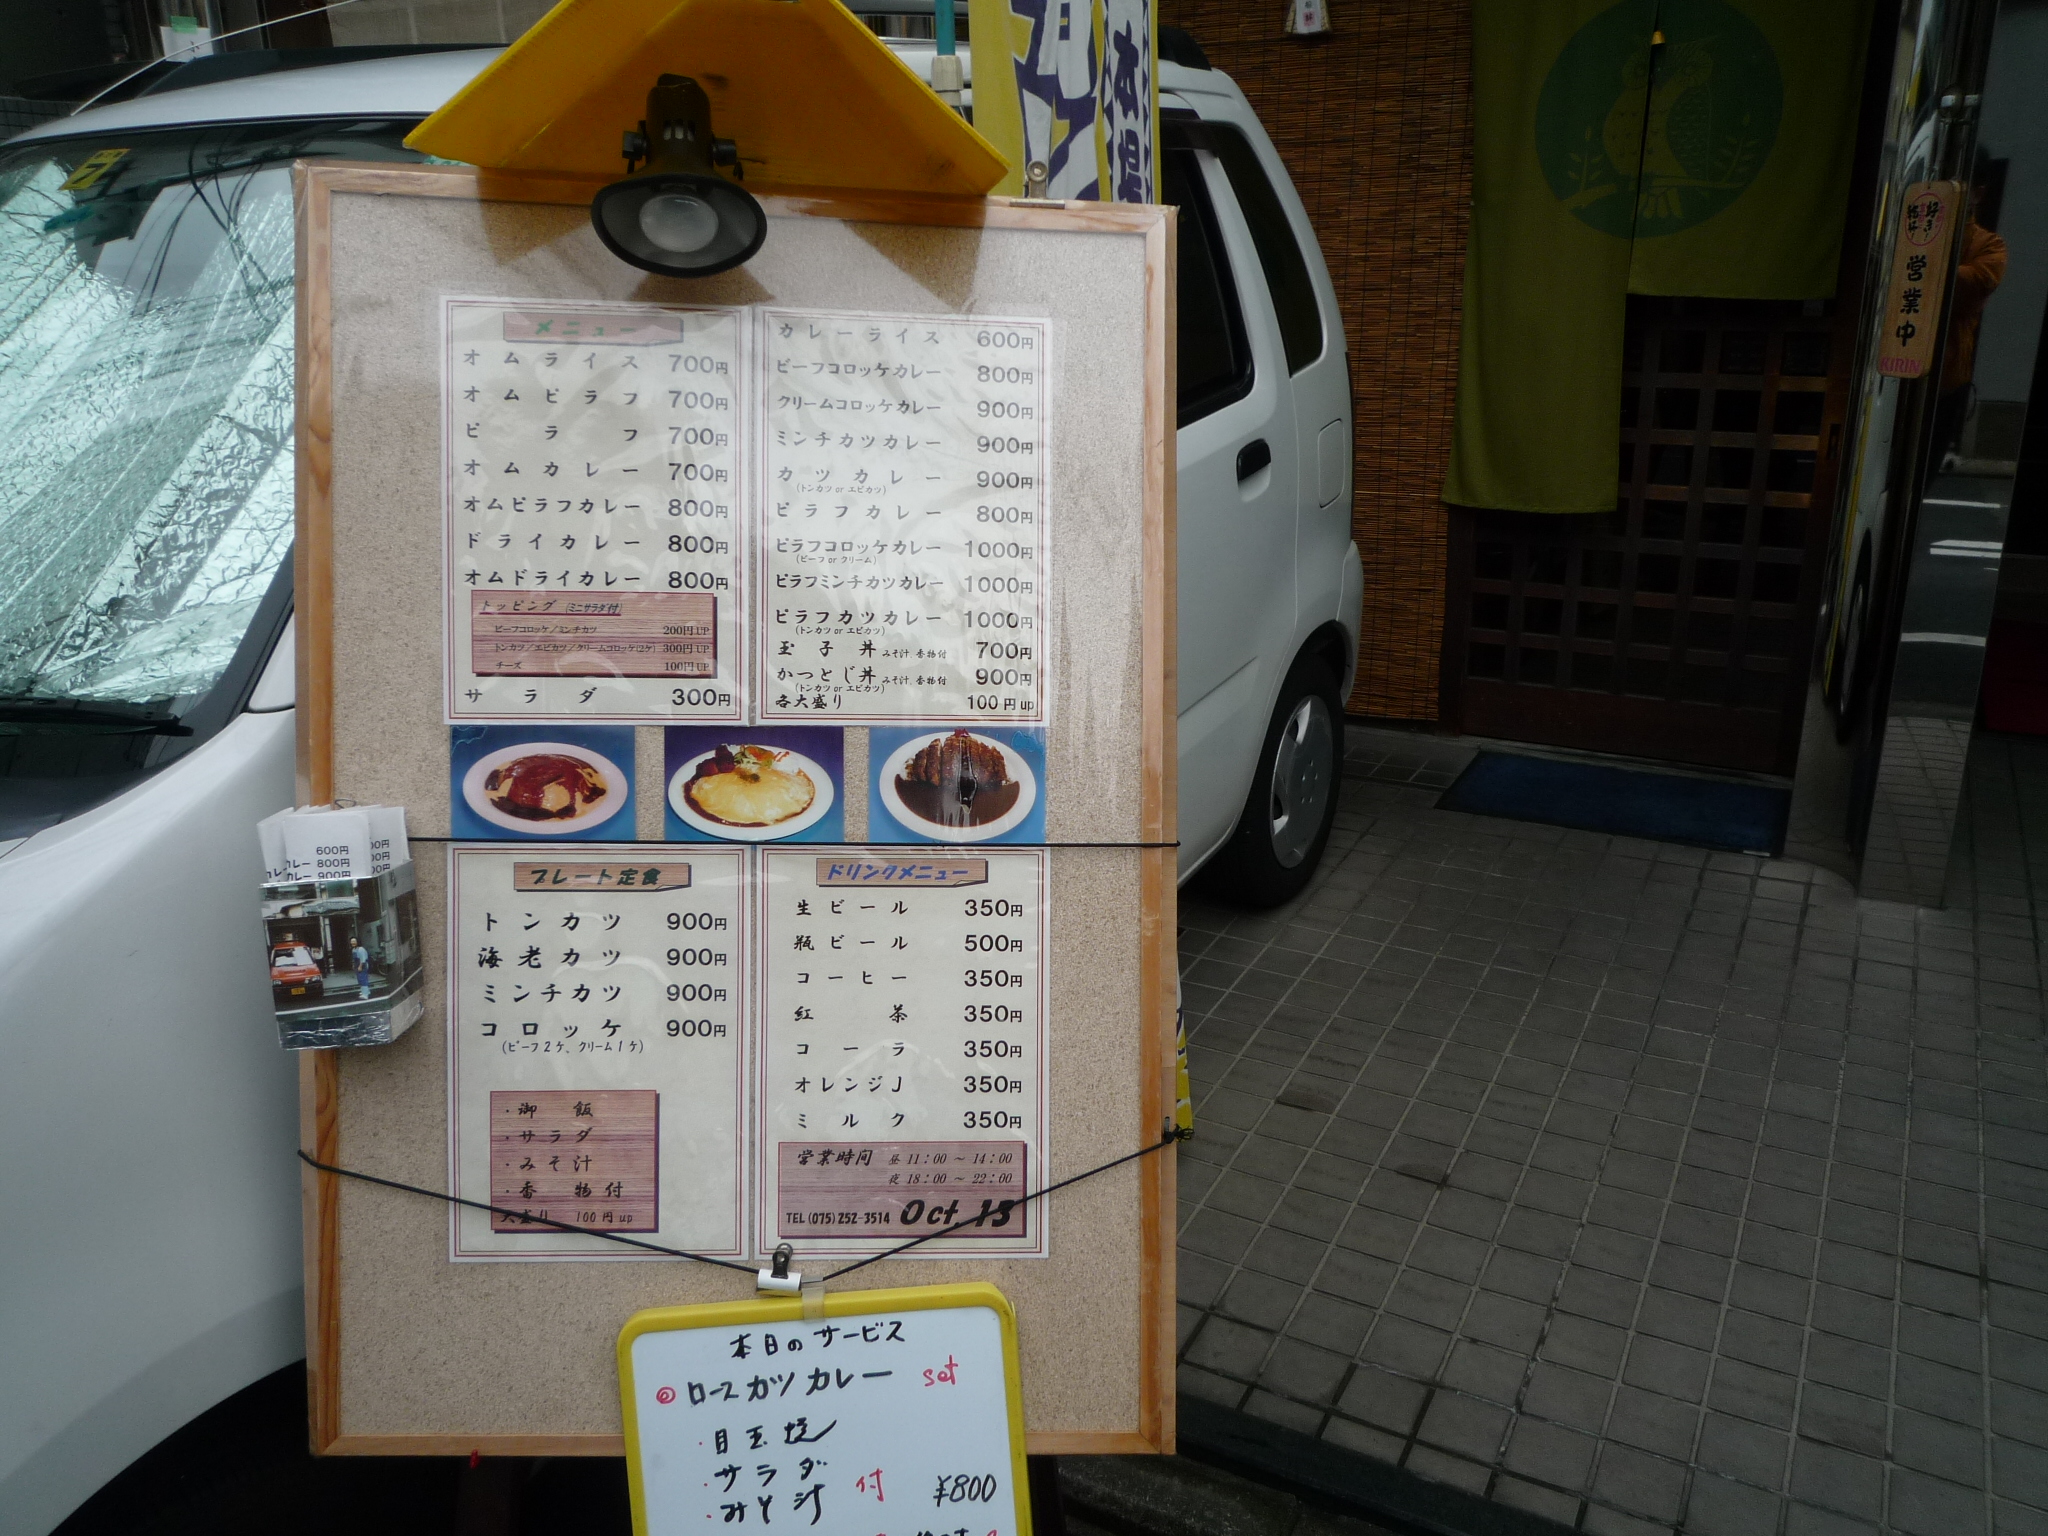 メニュー
オムライス 700円
オムピラフ 700円
ピラフ 700円
オムカレー 700円
オムピラフカレー 800円
ドライカレー 800円
オムドライカレー 800円
トッピング (ミニサラダ付)
ビーフコロッケ/ミンチカツ 200円UP
トンカツ/エビカツ/クリームコロッケ(2ケ) 300円UP
チーズ 100円UP
サラダ 300円
カレーライス 600円
ビーフコロッケカレー 800円
クリームコロッケカレー 900円
ミンチカツカレー 900円
カツカレー 900円
(トンカツ or エビカツ)
ピラフカレー 800円
ピラフコロッケカレー 1000円
(ビーフ or クリーム)
ピラフミンチカツカレー 1000円
ピラフカツカレー 1000円
(トンカツ or エビカツ)
玉子丼 みそ汁、香物付 700円
かつとじ丼 みそ汁、香物付 900円
(トンカツ or エビカツ)
各大盛り 100円up
プレート定食
トンカツ 900円
海老カツ 900円
ミンチカツ 900円
コロッケ 900円
(ビーフ2ケ、クリーム1ケ)
・御飯
・サラダ
・みそ汁
・香物付
大盛り 100円up
ドリンクメニュー
生ビール 350円
瓶ビール 500円
コーヒー 350円
紅茶 350円
コーラ 350円
オレンジJ 350円
ミルク 350円
営業時間 昼 11:00 ~ 14:00
夜 18:00 ~ 22:00
TEL (075)252-3514 Oct. 13
600円
カレー 800円
カレー 900円
本日のサービス
◎ロースカツカレー set
・目玉焼
・サラダ
・みそ汁 付 ¥800
営業中
KIRIN